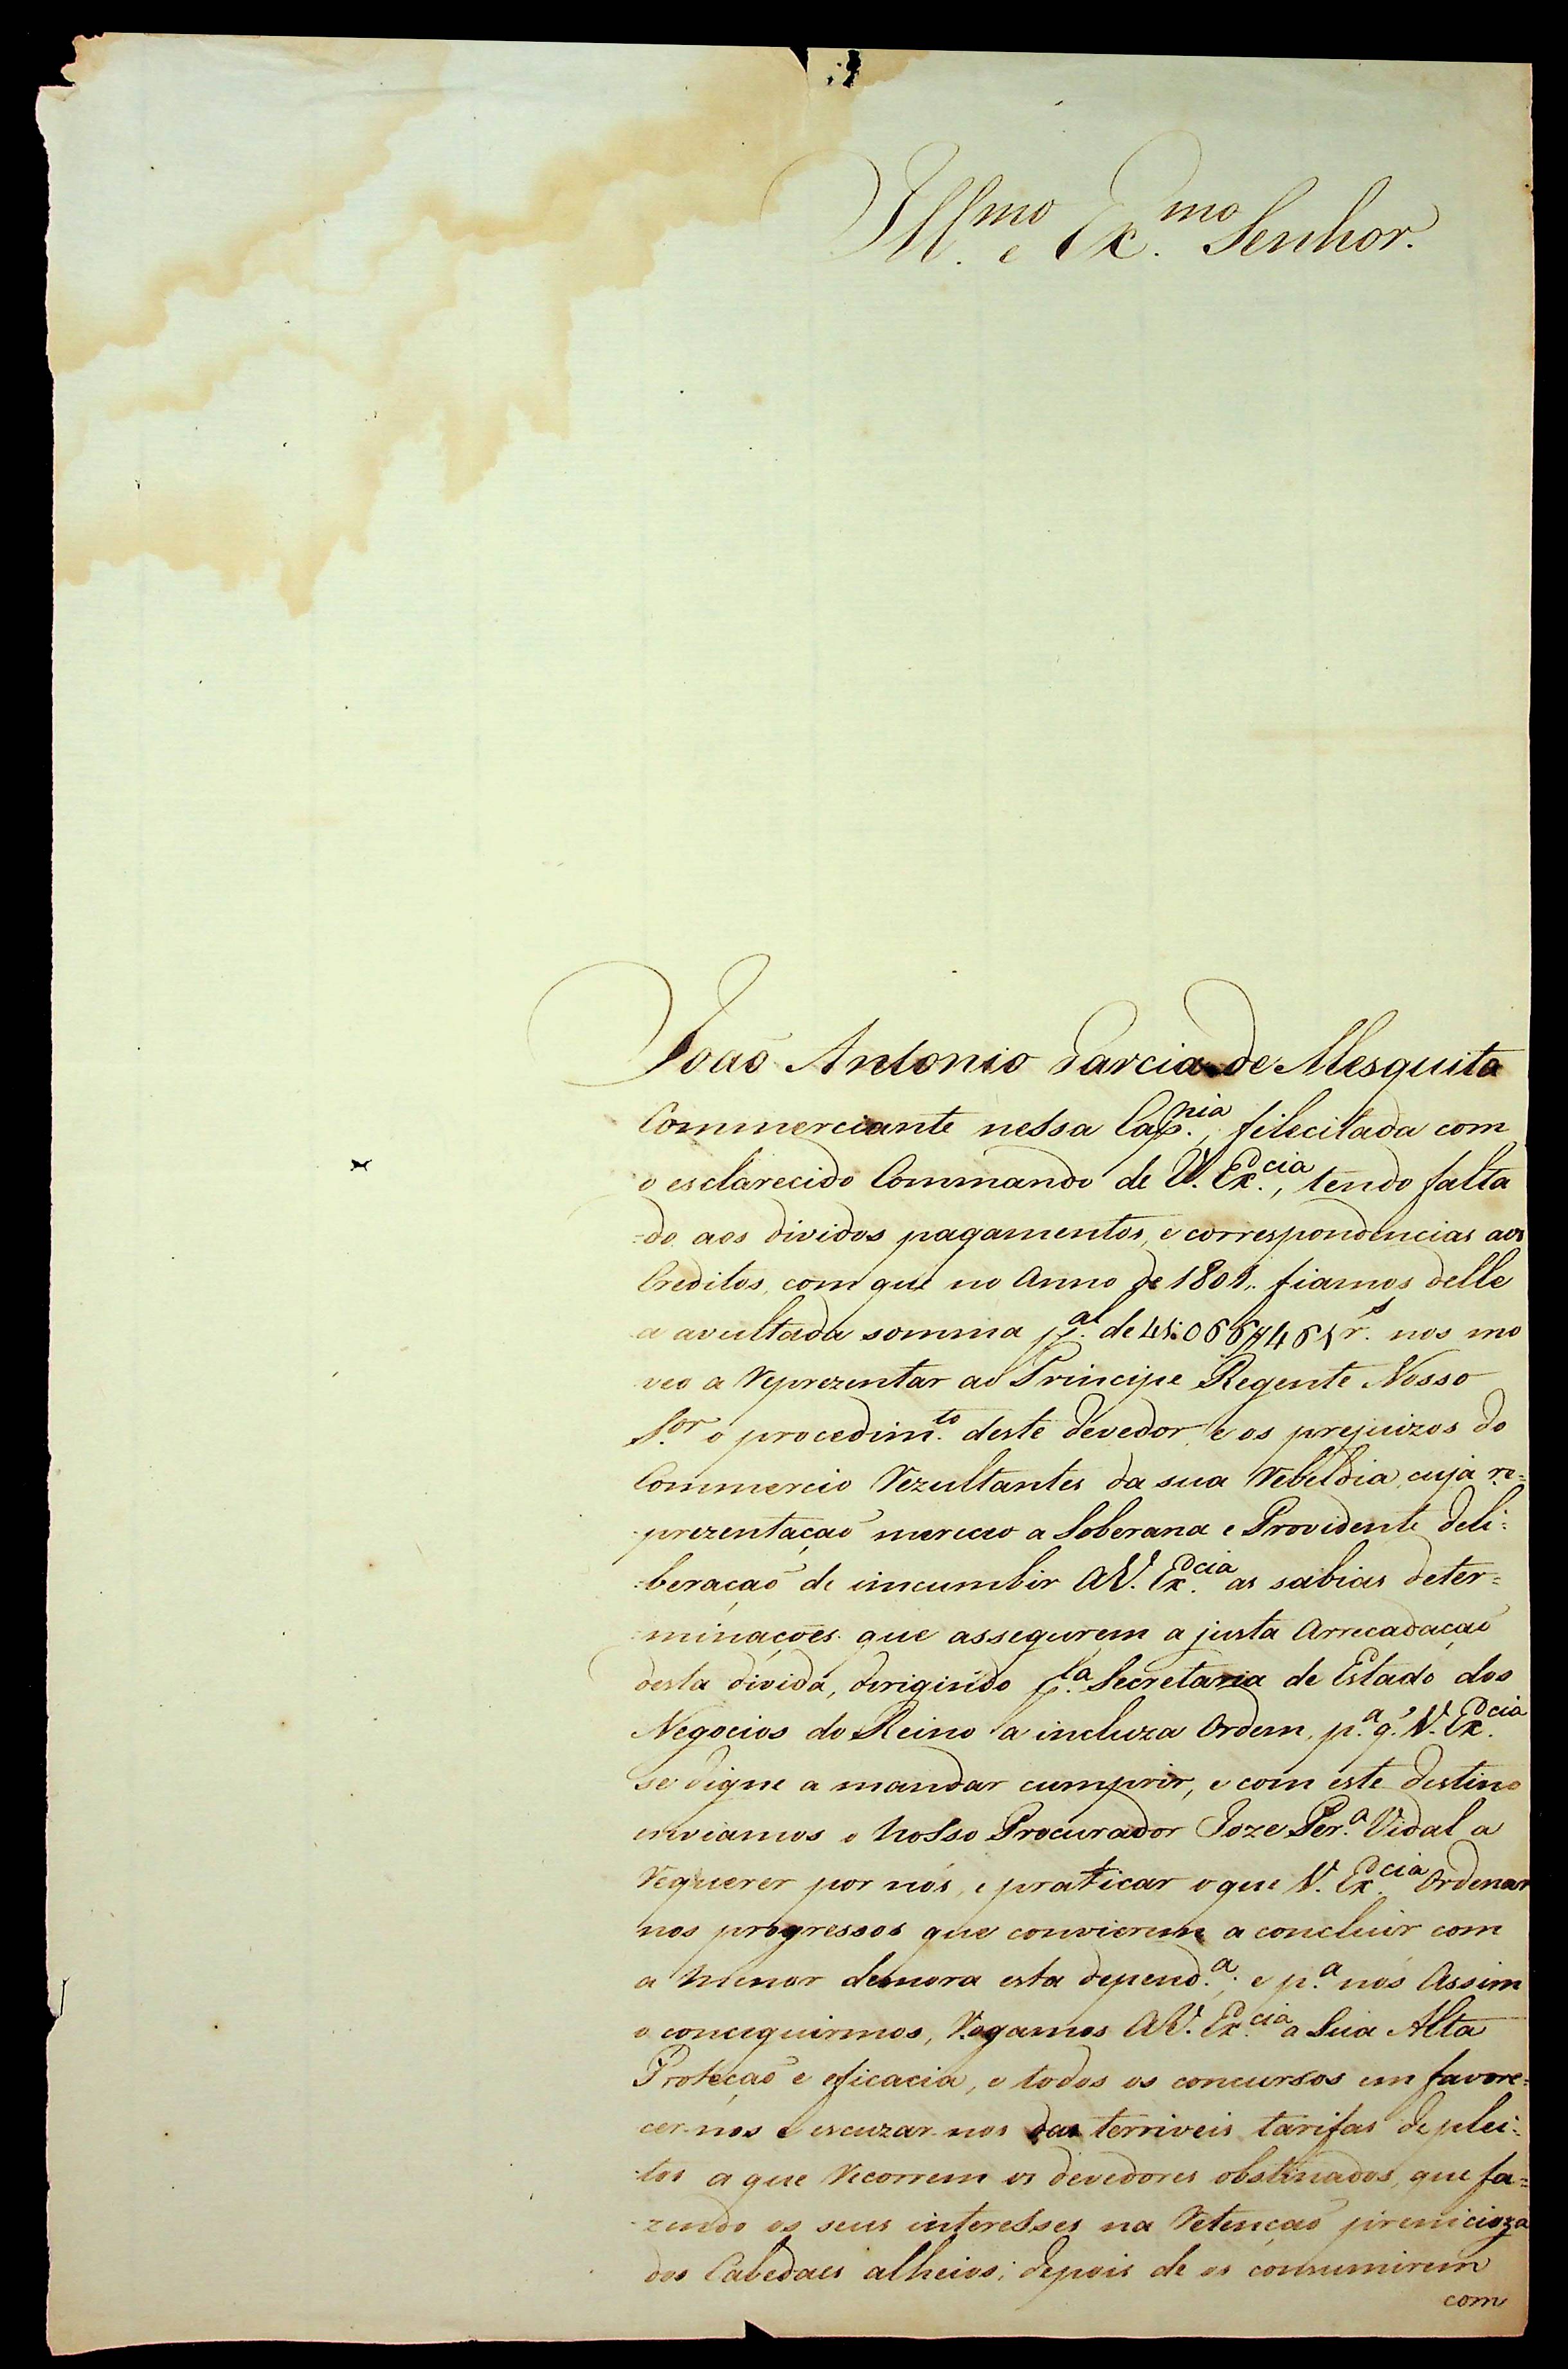 Ill.mo e Ex.mo Senhor.
Joaõ Antonio Garcia de Mesquita
Commerciante nessa Cap.nia, filecitada com
o esclarecido Commando de V. Ex.cia, tendo falta
=do aos dividos pagamentos, e correspondencias aos
Creditos, com que no Anno de 1801. fiamos delle
a avultada somma p.al de r.s nos mo
veo a Reprezentar ao Principe Regente Nosso
S.or o procedim.to deste devedor, e os prejuizos do
Commercio Rezultantes da sua Rebeldia, cuja re=
prezentaçaõ mereceo a Soberana e Providente deli=
=beraçaõ de imcumbir a V. Ex.cia as sabias deter=
=minaçoẽs que assegurem a justa Arrecadaçaõ
desta divida, dirigindo p.la Secretaria de Estado dos
Negocios do Reino a incluza Ordem, p.a q.' V. Ex.cia
se digne a mandar cumprir, e com este destino
inviamos o nosso Procurador Joze Per.a Vidal a
Requerer por nós, e praticar o que V. Ex.cia Ordenar
nos progressos que convierem a concluir com
a menor demora esta depend.a; e p.a nós Assim
o conceguirmos, Rogamos a V. Ex.cia a Sua Alta
Proteçaõ e eficacia, e todos os concursos em favore=
cer-nos e escuzar-nos das terriveis tarifas de plei=
tos a que Recorrem os devedores obstinados, que fa=
zendo os seus interesses na Retençaõ pirnicioza
dos Cabedaes alheios; depois de os consumirem
com